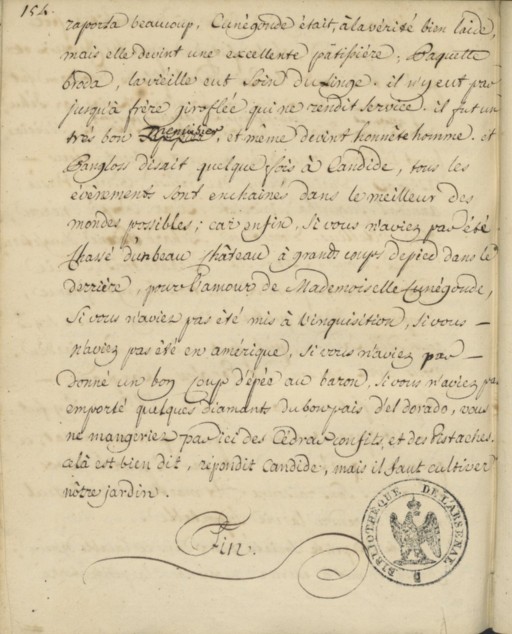 154.
raporta beaucoup. Cunégonde était, à la vérité bien laide,
mais elle devint une excellente pâtissière; Paquette
broda, la vieille eut soin du linge. il n'y eut pas
jusqu'à frère giroflée qui ne rendit service. il fut un
très bon menuisier, et même devint honnête homme. et
Pangloss disait quelque fois à Candide, tous les
évènements sont enchainés dans le meilleur des
mondes possibles; car enfin, si vous n'aviez pas été
chassé d'un beau château à grands coups de pied dans le
derrière, pour l'amour de Mademoiselle Cunégonde,
si vous n'aviez pas été mis à l'inquisition, si vous —
n'aviez pas été en amérique, si vous n'aviez pas —
donné un bon coup d'épée au baron, si vous n'aviez pas
emporté quelques diamants du bon païs d'el dorado, vous
ne mangeriez pas ici des Cédras confits, et des Pistaches.
celà est bien dit, répondit Candide, mais il faut cultiver
nôtre jardin.
Fin
BIBLIOTHÈQUE DE L'ARSENAL